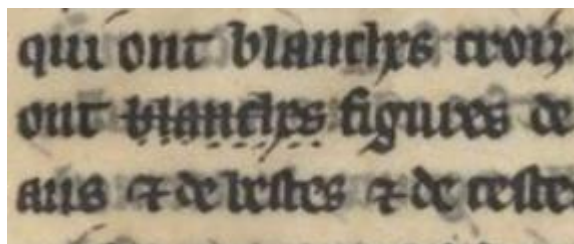 qui ont blanches croiz
ont blanches figures de
aus ⁊ de bestes ⁊ de teste